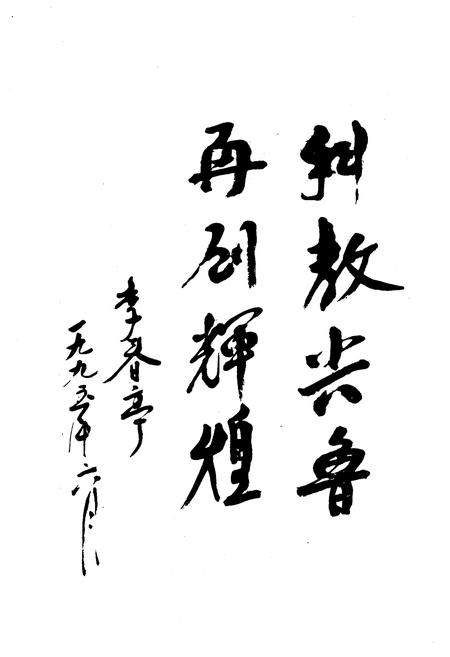 科教兴鲁
再创辉煌
李春亭
一九九五年六月